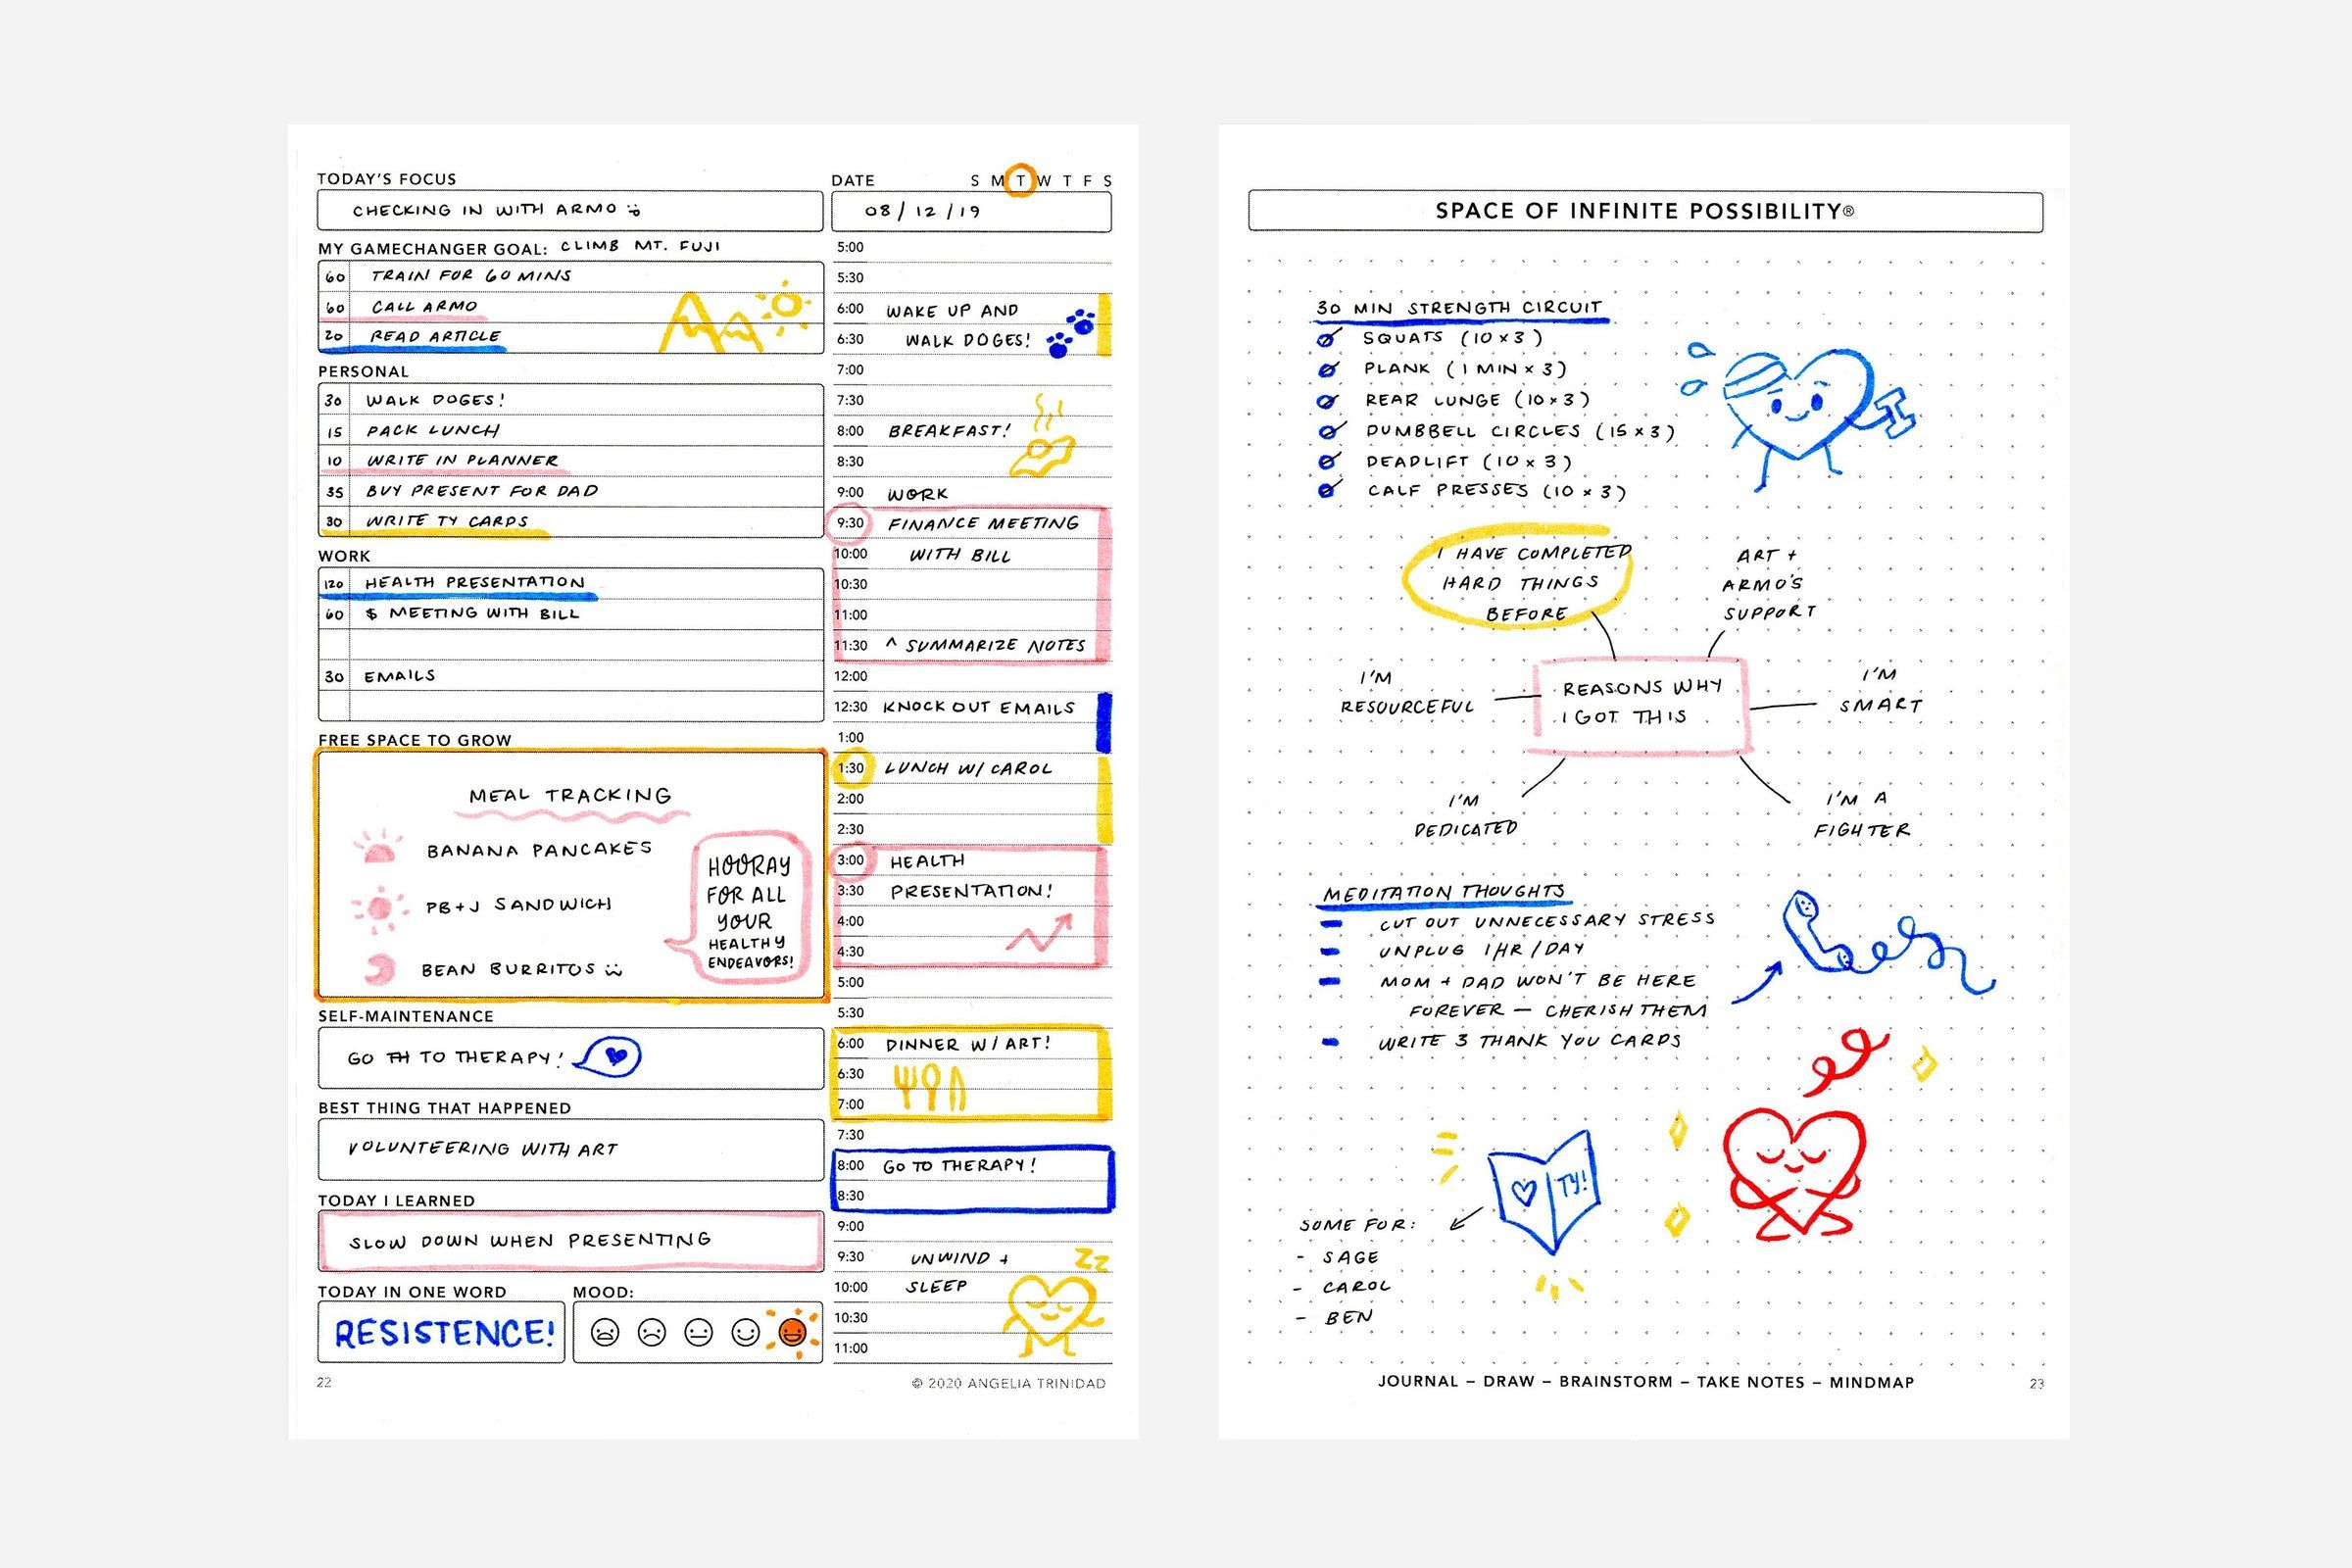 TODAY'S FOCUS
CHECKING IN WITH ARMO
MY GAMECHANGER GOAL: CLIMB MT. FUJI
60 TRAIN FOR 60 MINS
60 CALL ARMO
20 READ ARTICLE
PERSONAL
30 WALK DOGES!
15 PACK LUNCH
10 WRITE IN PLANNER
35 BUY PRESENT FOR DAD
30 WRITE TY CARDS
WORK
120 HEALTH PRESENTATION
60 $ MEETING WITH BILL
30 EMAILS
FREE SPACE TO GROW
MEAL TRACKING
BANANA PANCAKES
PB+J SANDWICH
BEAN BURRITOS
HOORAY
FOR ALL
YOUR
HEALTHY
ENDEAVORS!
SELF-MAINTENANCE
GO TH TO THERAPY!
BEST THING THAT HAPPENED
VOLUNTEERING WITH ART
TODAY I LEARNED
SLOW DOWN WHEN PRESENTING
TODAY IN ONE WORD
RESISTENCE!
MOOD:
22
DATE S M T W T F S
08/12/19
5:00
5:30
6:00 WAKE UP AND
6:30 WALK DOGES!
7:00
7:30
8:00 BREAKFAST!
8:30
9:00 WORK
9:30 FINANCE MEETING
10:00 WITH BILL
10:30
11:00
11:30 ^ SUMMARIZE NOTES
12:00
12:30 KNOCK OUT EMAILS
1:00
1:30 LUNCH W/ CAROL
2:00
2:30
3:00 HEALTH
3:30 PRESENTATION!
4:00
4:30
5:00
5:30
6:00 DINNER W/ ART!
6:30
7:00
7:30
8:00 GO TO THERAPY!
8:30
9:00
9:30 UNWIND +
10:00 SLEEP
ZZ
10:30
11:00
© 2020 ANGELIA TRINIDAD
SPACE OF INFINITE POSSIBILITY®
30 MIN STRENGTH CIRCUIT
SQUATS (10 x 3)
PLANK (1 MIN x 3)
REAR LUNGE (10 x 3)
DUMBBELL CIRCLES (15 x 3)
DEADLIFT (10 x 3)
CALF PRESSES (10 x 3)
I HAVE COMPLETED
HARD THINGS
BEFORE
ART +
ARMO'S
SUPPORT
I'M
RESOURCEFUL
REASONS WHY
I GOT THIS
I'M
SMART
I'M
DEDICATED
I'M A
FIGHTER
MEDITATION THOUGHTS
- CUT OUT UNNECESSARY STRESS
- UNPLUG 1HR/DAY
- MOM + DAD WON'T BE HERE
FOREVER — CHERISH THEM
- WRITE 3 THANK YOU CARDS
TY!
SOME FOR:
- SAGE
- CAROL
- BEN
JOURNAL – DRAW – BRAINSTORM – TAKE NOTES – MINDMAP
23